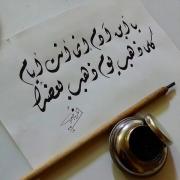 يا ابن آدم إنما أنت أيام
كلما ذهب يوم ذهب بعضك